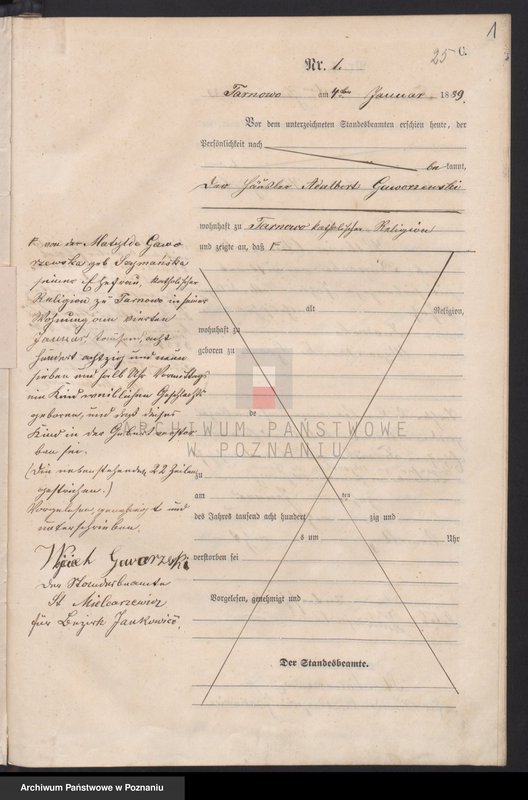 1
25
C.
Nr. 1.
Tarnowo am 4ten Januar 1889.
Vor dem unterzeichneten Standesbeamten erschien heute, der
Persönlichkeit nach
be kannt,
Der Häusler Adalbert Gaworzewski
wohnhaft zu Tarnowo katholischer Religion
und zeigte an, daß
von der Matylda Gawo
rzewska geb Szymańska
seiner Ehefrau, katholischer
Religion zu Tarnowo in seiner
Wohnung am vierten
Januar tausend acht
hundert achtzig und neun
sieben und halb Uhr Vormittags
ein Kind weiblichen Geschlechts
geboren, und daß dieses
Kind in der Geburt verstor
ben sei.
(Die nebenstehenden 22 Zeilen
gestrichen.)
Vorgelesen, genehmigt und
unterschrieben.
Gaworzeski
Der Standesbeamte
St Mielcarzewicz
für Bezirk Jankowice.
alt Religion,
wohnhaft zu
geboren zu
de
zu
am ten
des Jahres tausend acht hundert zig und
s um Uhr
verstorben sei
Vorgelesen, genehmigt und
Der Standesbeamte.
ARCHIWUM PAŃSTWOWE
W POZNANIU
Archiwum Państwowe w Poznaniu